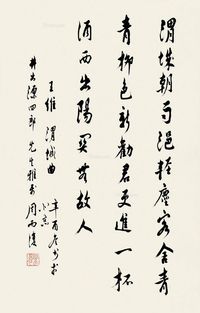 渭城朝雨浥轻尘客舍青
青柳色新劝君更进一杯
酒西出阳关無故人
王维渭城曲
井出源四郎先生雅属
辛酉冬书於
北京
周而復